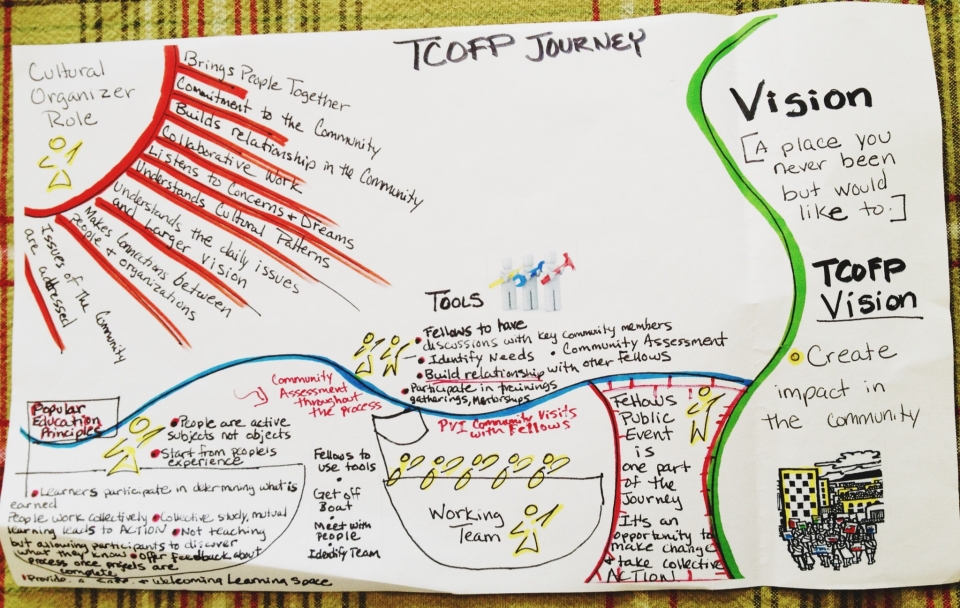 TCOFP JOURNEY
Cultural
Organizer
Role
Brings People Together
Commitment to the Community
Builds relationship in the Community
Collaborative Work
Listens to Concerns + Dreams
Understands Cultural Patterns
Understands the daily issues
and Larger Vision
Makes connections between
people + organizations
Issues of the Community
are addressed
Vision
[A place you
never been
but would
like to.]
TCOFP
Vision
Create
impact in
the community
TOOLS
Fellows to have
discussions with key community members
Identify Needs • Community Assessment
Build relationship with other fellows
Participate in trainings
gatherings, mentorships
Community
Assessment
throughout
the process
Popular
Education
Principles
People are active
subjects not objects
Start from people's
experience
Learners participate in determining what is
earned
People work collectively • Collective study, mutual
learning leads to ACTION • Not teaching
but allowing participants to discover
what they know • Offer feedback about
process once projects are
complete
Provide a + Welcoming Learning Space
Fellows to
use tools
Get off
Boat
Meet with
People
Identify Team
PVI Community Visits
with Fellows
Working
Team
Fellows
Public
Event
is
one part
of the
Journey
It's an
opportunity to
make change
+ take collective
ACTION